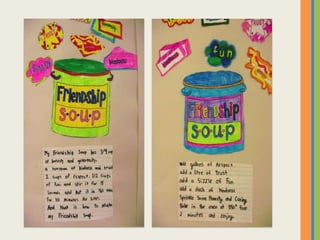 Fun
Kindness
Friendship
SOUP
My Friendship Soup has 3/4 cup
of honesty and generosity.
a teaspoon of kindness and trust
2 cups of respect. 3 1/2 cups
of fun and stir it for 15
seconds and Put it in the oven
for 30 minutes
And that is how to make
my Friendship Soup.
Trust
Fun
Friendship
SOUP
gallons of Respect
add a litre of Trust
add a Sizzle of Fun
add a dash of Kindness
Sprinkle some Honesty and Caring.
Bake in the oven at 350° for
2 minutes and enjoy.